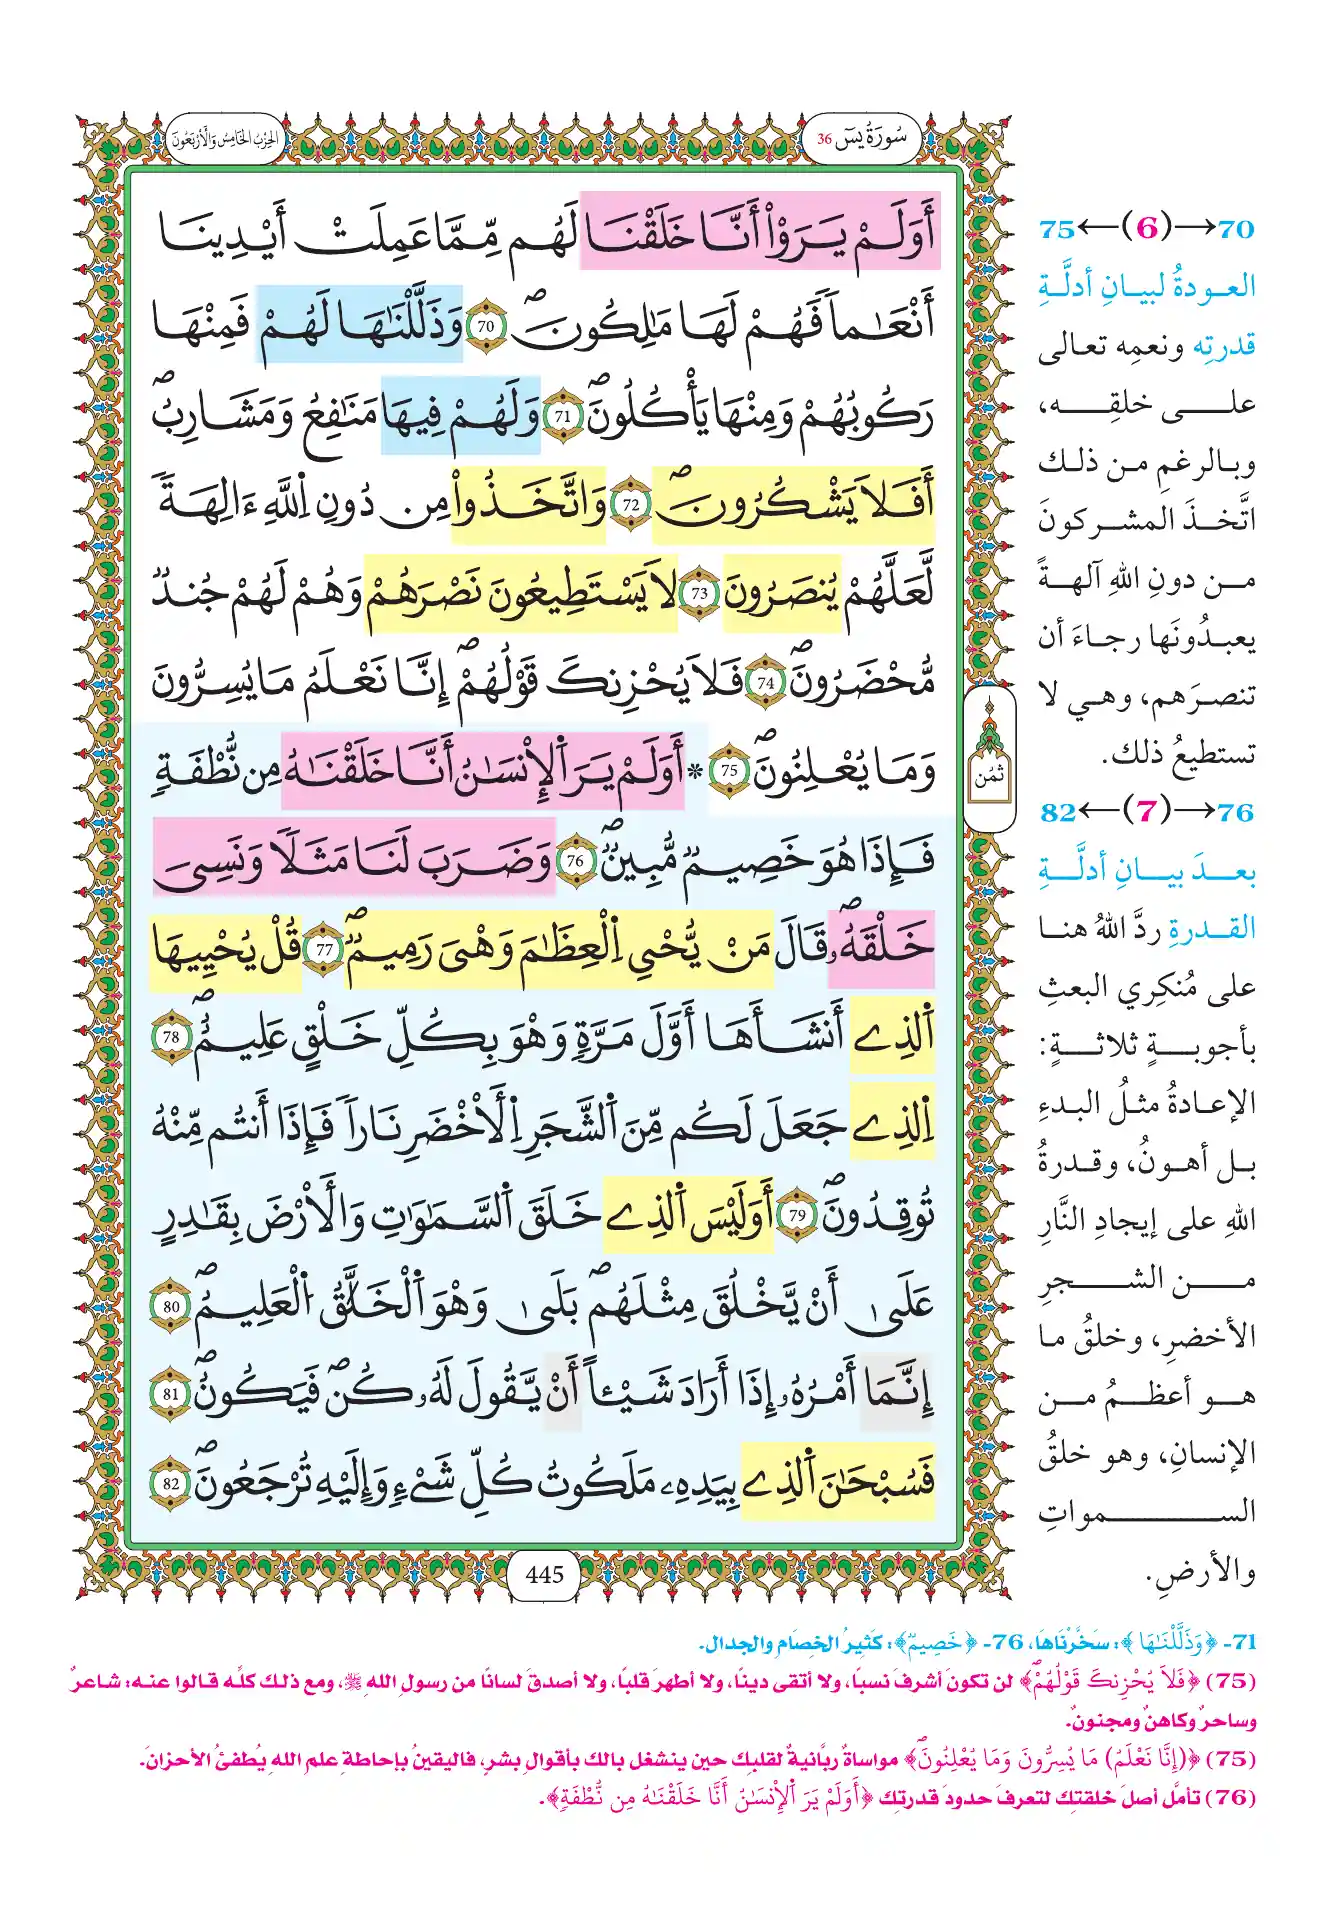 سُورَةُ يسٓ 36
الحِزْبُ الخَامِسُ وَالْأَرْبَعُونَ
أَوَلَمْ يَرَوْاْ أَنَّا خَلَقْنَا لَهُم مِّمَّا عَمِلَتْ أَيْدِينَا
أَنْعَٰماً فَهُمْ لَهَا مَٰلِكُونَۖ 70 وَذَلَّلْنَٰهَا لَهُمْ فَمِنْهَا
رَكُوبُهُمْ وَمِنْهَا يَأْكُلُونَۖ 71 وَلَهُمْ فِيهَا مَنَٰفِعُ وَمَشَارِبُۖ
أَفَلَا يَشْكُرُونَۖ 72 وَاتَّخَذُواْ مِن دُونِ اِ۬للَّهِ ءَالِهَةٗ
لَّعَلَّهُمْ يُنصَرُونَ 73 لَا يَسْتَطِيعُونَ نَصْرَهُمْ وَهُمْ لَهُمْ جُندٞ
مُّحْضَرُونَۖ 74 فَلَا يُحْزِنكَ قَوْلُهُمْۖ إِنَّا نَعْلَمُ مَا يُسِرُّونَ
وَمَا يُعْلِنُونَۖ 75 * أَوَلَمْ يَرَ اَ۬لْإِنسَٰنُ أَنَّا خَلَقْنَٰهُ مِن نُّطْفَةٖ
فَإِذَا هُوَ خَصِيمٞ مُّبِينٞۖ 76 وَضَرَبَ لَنَا مَثَلٗا وَنَسِىَ
خَلْقَهُۥۖ قَالَ مَنْ يُّحْيِ اِ۬لْعِظَٰمَ وَهْىَ رَمِيمٞۖ 77 قُلْ يُحْيِيهَا
اَ۬لذِے أَنشَأَهَا أَوَّلَ مَرَّةٖ وَهْوَ بِكُلِّ خَلْقٍ عَلِيمٌۖ 78
اِ۬لذِے جَعَلَ لَكُم مِّنَ اَ۬لشَّجَرِ اِ۬لْأَخْضَرِ نَاراٗ فَإِذَا أَنتُم مِّنْهُ
تُوقِدُونَۖ 79 أَوَلَيْسَ اَ۬لذِے خَلَقَ اَ۬لسَّمَٰوَٰتِ وَالْأَرْضَ بِقَٰدِرٍ
عَلَىٰ أَنْ يَّخْلُقَ مِثْلَهُمۖ بَلَىٰ وَهْوَ اَ۬لْخَلَّٰقُ اُ۬لْعَلِيمُۖ 80
إِنَّمَا أَمْرُهُۥ إِذَا أَرَادَ شَيْـٔاً أَنْ يَّقُولَ لَهُۥ كُنۖ فَيَكُونُۖ 81
فَسُبْحَٰنَ اَ۬لذِے بِيَدِهِۦ مَلَكُوتُ كُلِّ شَےْءٖ وَإِلَيْهِ تُرْجَعُونَۖ 82
445
ثُمُن
70→(6)←75
العـودةُ لبيـانِ أدلَّـةِ
قدرتِه ونعمِه تعـالى
علـــى خلقِـــه،
وبـالرغمِ مـن ذلـك
اتَّخـذَ المشـركونَ
مــن دونِ اللهِ آلهــةً
يعبـدُونَها رجـاءَ أن
تنصـرَهم، وهـي لا
تستطيعُ ذلك.
76→(7)←82
بعــدَ بيــانِ أدلَّــةِ
القـدرةِ ردَّ اللهُ هنـا
على مُنكِري البعثِ
بأجوبــةٍ ثلاثــةٍ:
الإعادةُ مثلُ البدءِ
بـل أهـونُ، وقـدرةُ
اللهِ على إيجادِ النَّارِ
مـــن الشـــجرِ
الأخضرِ، وخلقُ مـا
هــو أعظــمُ مــن
الإنسانِ، وهو خلقُ
الســـمواتِ
والأرضِ.
71- ﴿وَذَلَّلْنَٰهَا﴾: سَخَّرْنَاهَا، 76- ﴿خَصِيمٞ﴾: كَثِيرُ الخِصَامِ والجِدالِ.
(75) ﴿فَلَا يُحْزِنكَ قَوْلُهُمْۖ﴾ لن تكونَ أشرفَ نسبًا، ولا أتقى دينًا، ولا أطهرَ قلبًا، ولا أصدقَ لسانًا من رسولِ اللهِ ﷺ، ومع ذلك كلِّه قالوا عنه: شاعرٌ
وساحرٌ وكاهنٌ ومجنونٌ.
(75) ﴿(إِنَّا نَعْلَمُ) مَا يُسِرُّونَ وَمَا يُعْلِنُونَۖ﴾ مواساةٌ ربَّانيةٌ لقلبِك حين ينشغل بالك بأقوالِ بشرٍ، فاليقينُ بإحاطةِ علمِ اللهِ يُطفئُ الأحزانَ.
(76) تأمَّل أصلَ خلقتِك لتعرفَ حدودَ قدرتِك ﴿أَوَلَمْ يَرَ اَ۬لْإِنسَٰنُ أَنَّا خَلَقْنَٰهُ مِن نُّطْفَةٖ﴾.